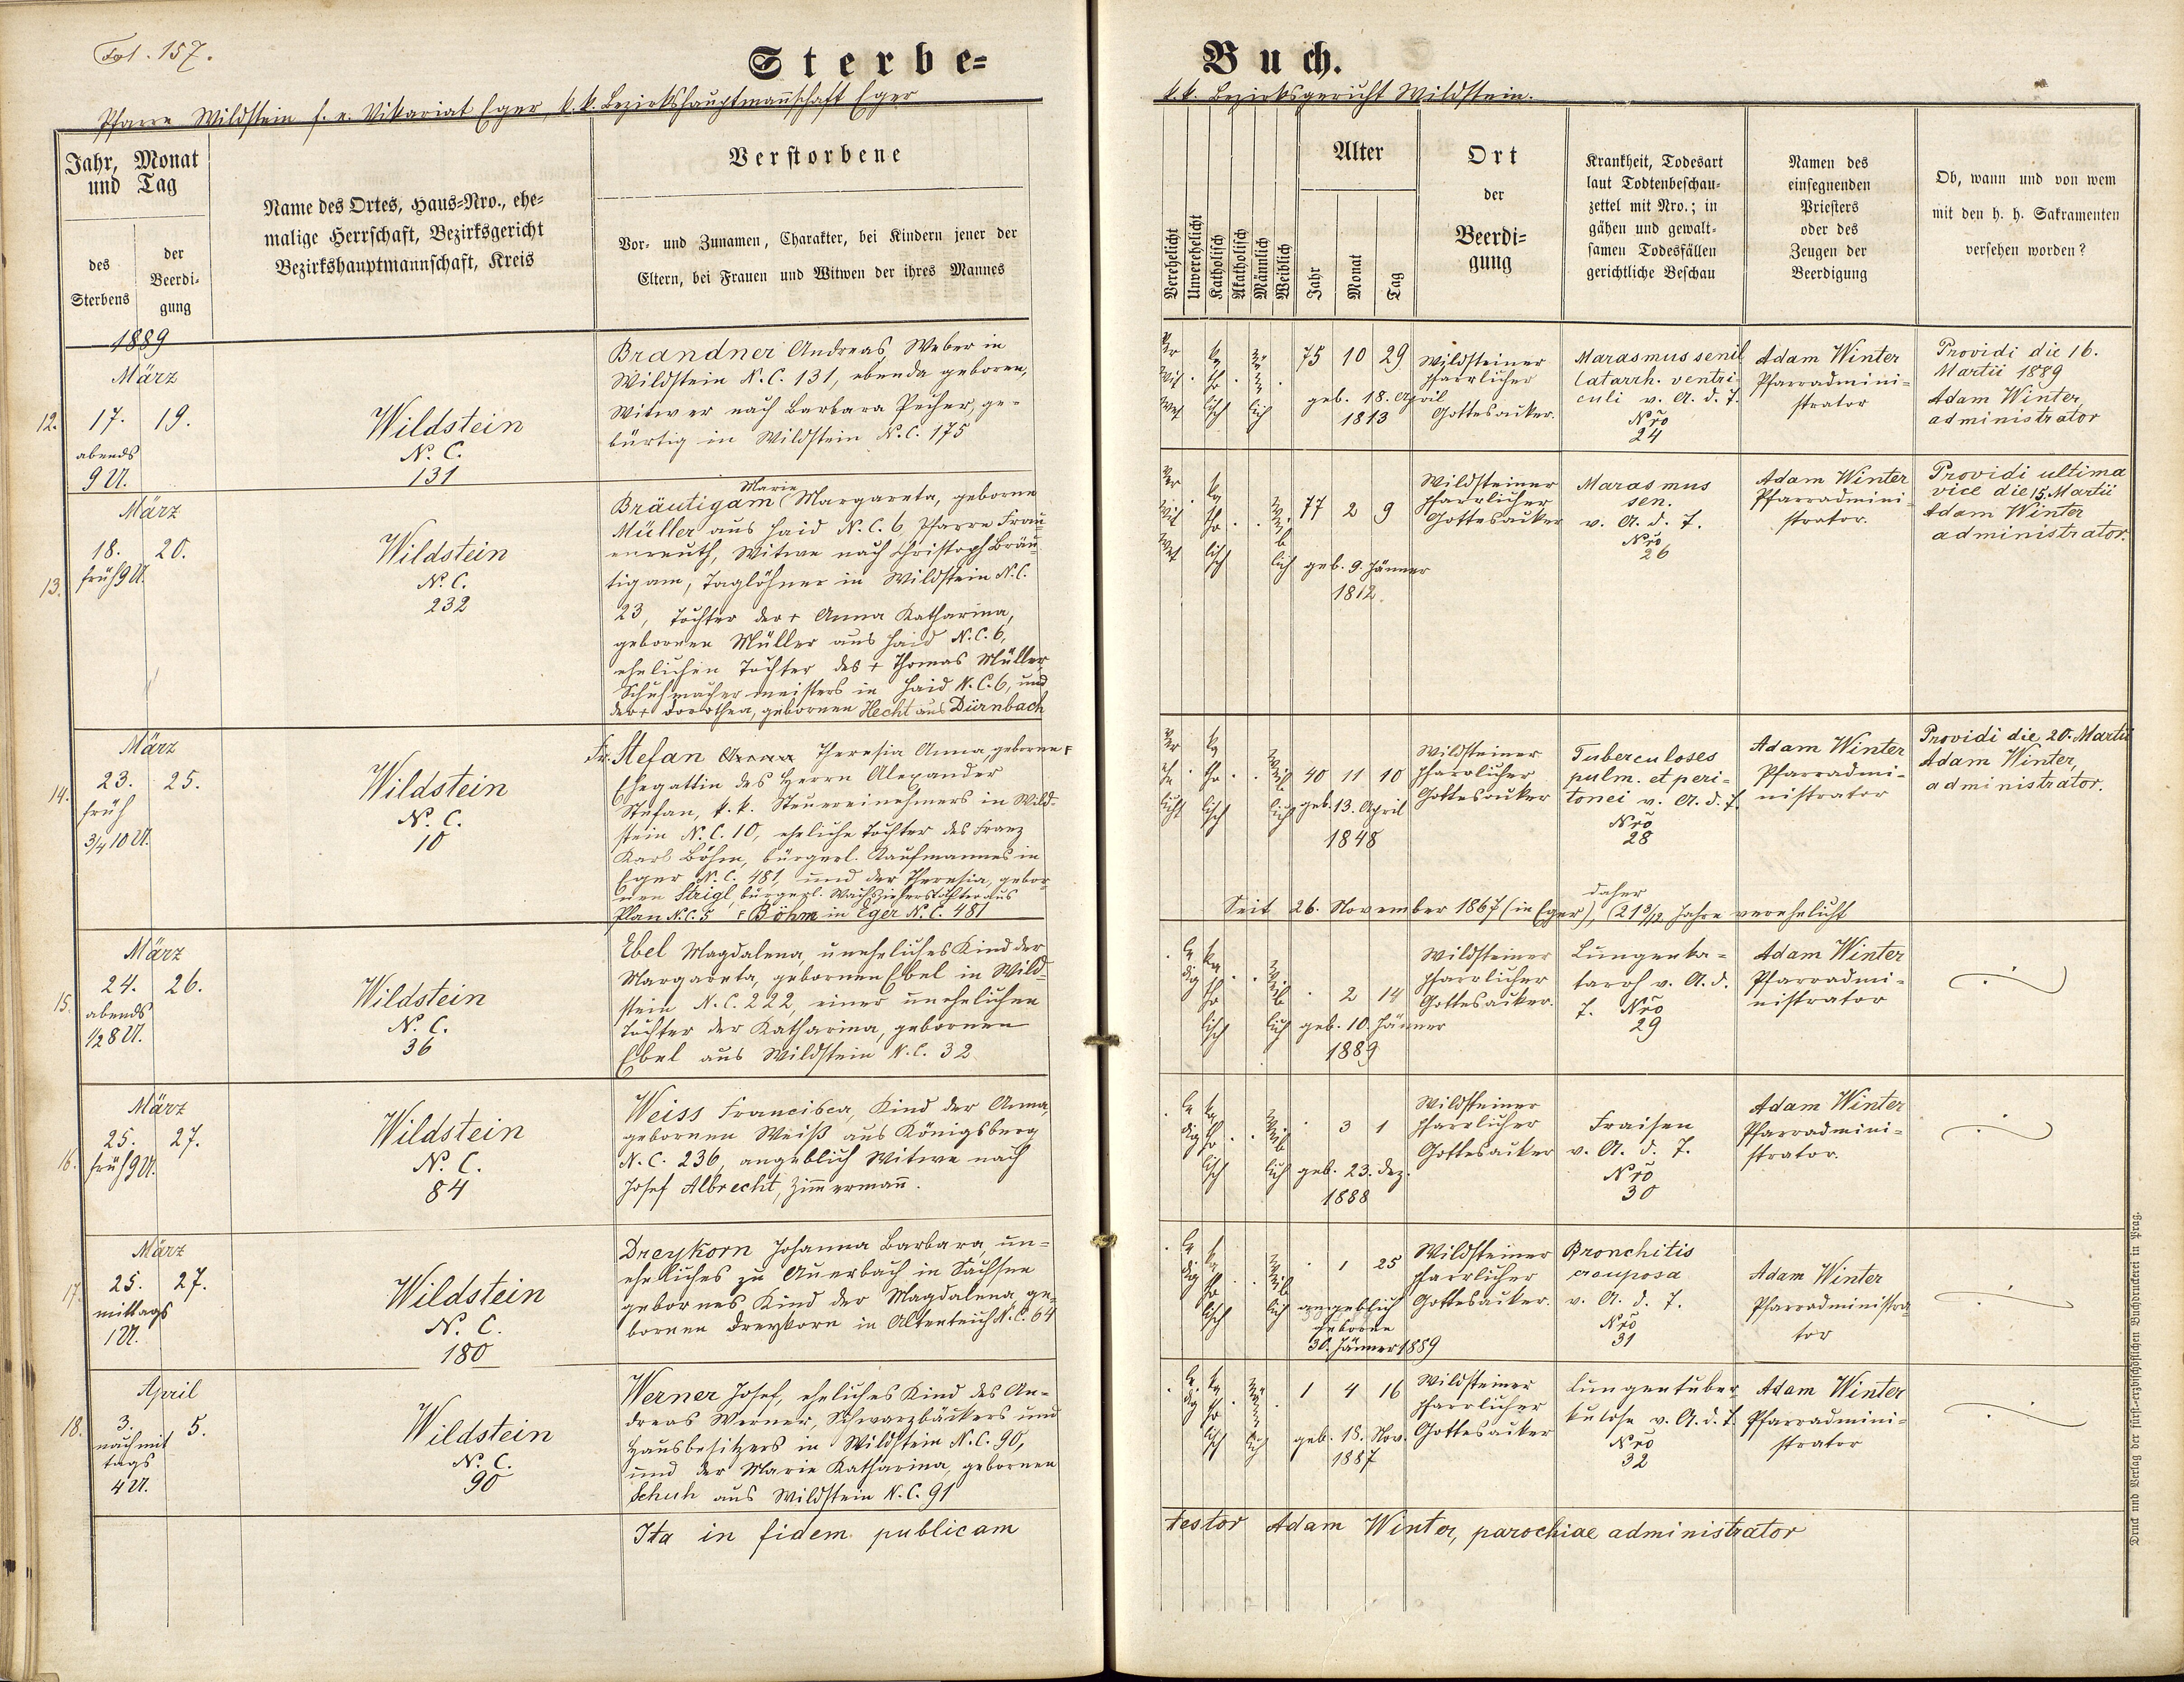 Fol. 157.
Sterbe-
Buch.
Pfarre Wildstein f. e. Vikariat Eger, k. k. Bezirkshauptmannschaft Eger
k. k. Bezirksgericht Wildstein.
Jahr, Monat
und Tag
des
Sterbens
der
Beerdi-
gung
Name des Ortes, Haus-Nro., ehe-
malige Herrschaft, Bezirksgericht
Bezirkshauptmannschaft, Kreis
Verstorbene
Vor- und Zunamen, Charakter, bei Kindern jener der
Eltern, bei Frauen und Witwen der ihres Mannes
Verehelicht
Unverehelicht
Katholisch
Akatholisch
Männlich
Weiblich
Alter
Jahr
Monat
Tag
Ort
der
Beerdi-
gung
Krankheit, Todesart
laut Todtenbeschau-
zettel mit Nro.; in
gähen und gewalt-
samen Todesfällen
gerichtliche Beschau
Namen des
einsegnenden
Priesters
oder des
Zeugen der
Beerdigung
Ob, wann und von wem
mit den h. h. Sakramenten
versehen worden?
1889
März
12. 17. 19.
abends
9 U.
Wildstein
N. C.
131
Brandner Andreas, Weber in
Wildstein N. C. 131, ebenda geboren,
Witwer nach Barbara Pecher, ge-
bürtig in Wildstein N. C. 175
Ver
wit
wet
ka
tho
lisch
Mä
nn
lich
75 10 29
geb. 18. April
1813
Wildsteiner
pfarrlicher
Gottesacker.
Marasmus senil
Catarrh. ventri-
culi v. A. d. T.
Nro
24
Adam Winter
Pfarradmini-
strator
Providi die 16.
Martii 1889
Adam Winter,
administrator
März
13. 18. 20.
früh 9 U.
Wildstein
N. C.
232
Marie
Bräutigam Margareta, geborne
Müller aus Haid N. C. 6, Pfarre Frau-
enreuth, Witwe nach Christoph Bräu-
tigam, Taglöhner in Wildstein N. C.
23, Tochter der + Anna Katharina,
gebornen Müller aus Haid N. C. 6,
ehelichen Tochter des + Thomas Müller,
Schuhmachermeisters in Haid N. C. 6, und
der + Dorothea, gebornen Hecht aus Dürnbach
Ver
wit
wet
ka
tho
lisch
Wei
b
lich
77 2 9
geb. 9. Jänner
1812.
Wildsteiner
pfarrlicher
Gottesacker
Marasmus
sen.
v. A. d. T.
Nro
26
Adam Winter
Pfarradmini-
strator.
Providi ultima
vice die 15. Martii
Adam Winter
administrator.
März
14. 23. 25.
früh
3/4 10 U.
Wildstein
N. C.
10
Fr. Stefan Anna Theresia Anna, geborne F
Ehegattin des Herrn Alexander
Stefan, k. k. Steuereinnehmers in Wild-
stein N. C. 10, eheliche Tochter des Franz
Karl Böhm, bürgerl. Kaufmannes in
Eger N. C. 481, und der Theresia, gebor-
nen Strigl, bürgerl. Wachszieherstochter aus
Plan N. C. 5 F Böhm in Eger N. C. 481
Ver
ehe
licht
ka
tho
lisch
Weib
lich
40 11 10
geb. 13. April
1848
Wildsteiner
pfarrlicher
Gottesacker
Tuberculoses
pulm. et peri-
tonei v. A. d. T.
Nro
28
Adam Winter
Pfarradmi-
nistrator
Providi die 20. Martii
Adam Winter,
administrator.
daher
Seit 26. November 1867 (in Eger), (21 3/12 Jahre verehelicht
März
15. 24. 26.
abends
1/2 8 U.
Wildstein
N. C.
36
Ebel Magdalena, uneheliches Kind der
Margareta, gebornen Ebel in Wild-
stein N. C. 222, einer unehelichen
Tochter der Katharina, gebornen
Ebel aus Wildstein N. C. 32
le
dig
ka
tho
lisch
Weib
lich
2 14
geb. 10. Jänner
1889
Wildsteiner
pfarrlicher
Gottesacker.
Lungenka-
tarrh v. A. d.
T. Nro
29
Adam Winter
Pfarradmi-
nistrator
März
16. 25. 27.
früh 9 U.
Wildstein
N. C.
84
Weiss Francisca, Kind der Anna,
gebornen Weiß aus Königsberg
N. C. 236, angeblich Witwe nach
Josef Albrecht, Zimmermann.
le
dig
ka
tho
lisch
Weib
lich
3 1
geb. 23. Dez.
1888
Wildsteiner
pfarrlicher
Gottesacker
Fraisen
v. A. d. T.
Nro
30
Adam Winter
Pfarradmini-
strator.
März
17. 25. 27.
mittags
1 U.
Wildstein
N. C.
180
Dreykorn Johanna Barbara, un-
eheliches zu Auerbach in Sachsen
gebornes Kind der Magdalena, ge-
bornen Dreykorn in Altenteich N. C. 64
le
dig
ka
tho
lisch
Weib
lich
1 25
angeblich
geboren
30. Jänner 1889
Wildsteiner
pfarrlicher
Gottesacker.
Bronchitis
crouposa
v. A. d. T.
Nro
31
Adam Winter
Pfarradministra-
tor
April
18. 3. 5.
nachmit
tags
4 U.
Wildstein
N. C.
90
Werner Josef, eheliches Kind des An-
dreas Werner, Schwarzbäckers und
Hausbesitzers in Wildstein N. C. 90,
und der Marie Katharina, gebornen
Schuh aus Wildstein N. C. 91
le
dig
ka
tho
lisch
Männ
lich
1 4 16
geb. 18. Nov.
1887
Wildsteiner
pfarrlicher
Gottesacker
Lungentuber-
kulose v. A. d. T.
Nro
32
Adam Winter
Pfarradmini-
strator
Ita in fidem publicam
testor Adam Winter, parochiae administrator
Druck und Verlag der fürst-erzbischöflichen Buchdruckerei in Prag.